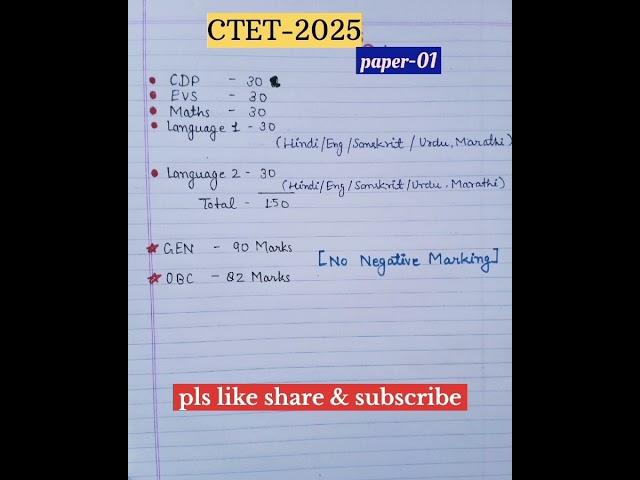 CTET-2025
paper-01
CDP - 30
EVS - 30
Maths - 30
Language 1 - 30
(Hindi/Eng/Sanskrit/Urdu, Marathi)
Language 2 - 30
(Hindi/Eng/Sanskrit/Urdu, Marathi)
Total - 150
GEN - 90 Marks
[No Negative Marking]
OBC - 82 Marks
pls like share & subscribe